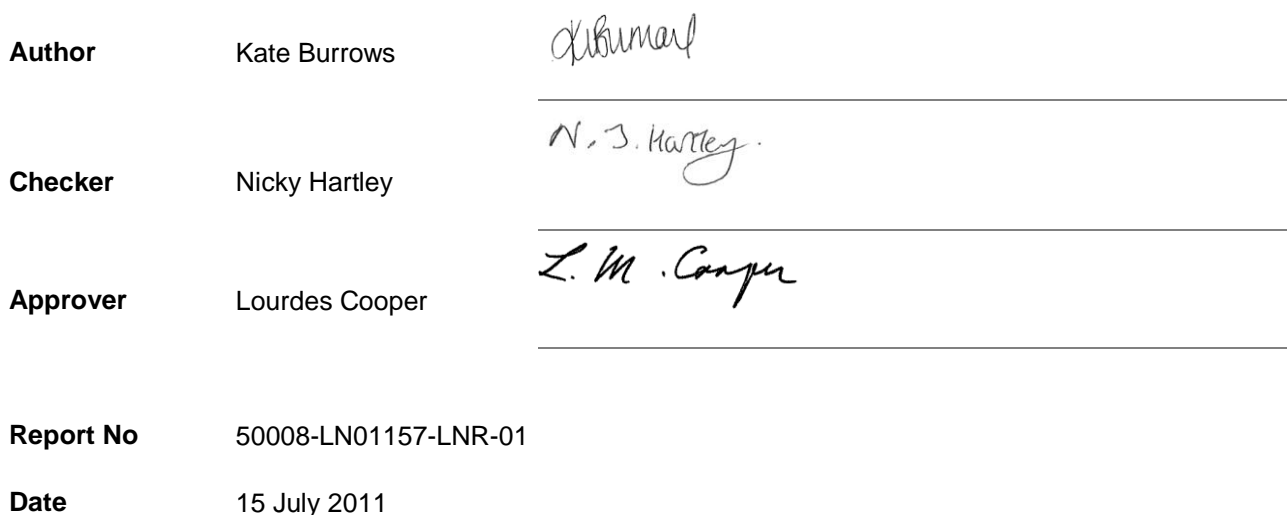 Author Kate Burrows
N. J. Hartley.
Checker Nicky Hartley
L. M. Cooper
Approver Lourdes Cooper
Report No 50008-LN01157-LNR-01
Date 15 July 2011